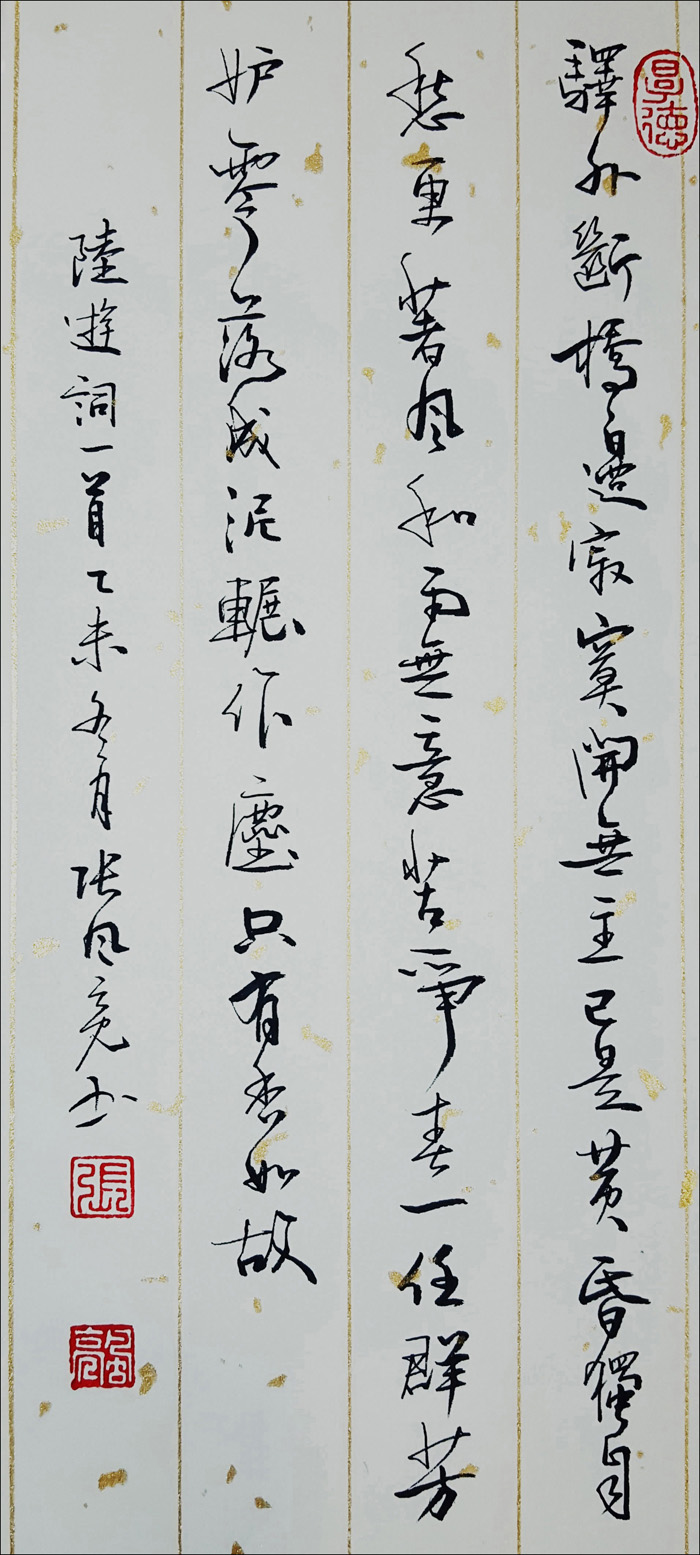 驛外斷橋邊寂寞開無主已是黃昏獨自
愁更著風和雨無意苦爭春一任群芳
妒零落成泥輾作塵只有香如故
陸遊詞一首乙未冬月張風亮書
張